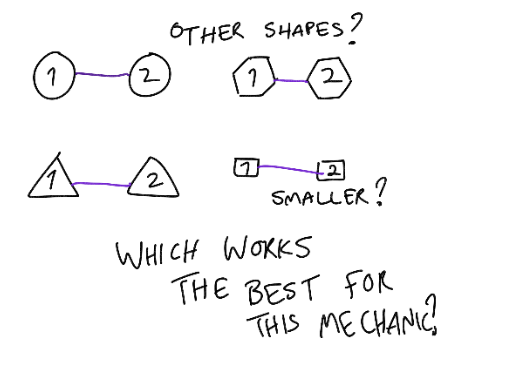 OTHER SHAPES?
1 2 1 2
1 2 1 2
SMALLER?
WHICH WORKS
THE BEST FOR
THIS MECHANIC?